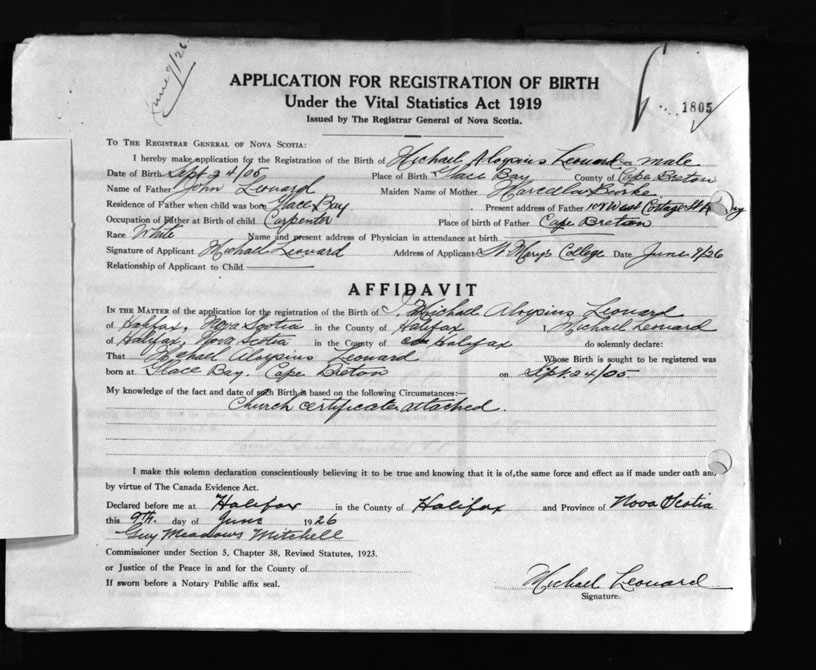 June 9/26
APPLICATION FOR REGISTRATION OF BIRTH
Under the Vital Statistics Act 1919
Issued by The Registrar General of Nova Scotia.
1805
TO THE REGISTRAR GENERAL OF NOVA SCOTIA:
I hereby make application for the Registration of the Birth of Michael Aloysius Leonard sex male
Date of Birth Sept 24/05 Place of Birth Glace Bay County of Cape Breton
Name of Father John Leonard Maiden Name of Mother
Residence of Father when child was born Glace Bay Present address of Father West
Occupation of Father at Birth of child Carpenter Place of birth of Father Cape Breton
Race White Name and present address of Physician in attendance at birth
Signature of Applicant Michael Leonard Address of Applicant St Mary's College Date June 9/26
Relationship of Applicant to Child
AFFIDAVIT
IN THE MATTER of the application for the registration of the Birth of I, Michael Aloysius Leonard
of Halifax, Nova Scotia in the County of Halifax I, Michael Leonard
of Halifax, Nova Scotia in the County of Halifax do solemnly declare:
That Michael Aloysius Leonard Whose Birth is sought to be registered was
born at Glace Bay. Cape Breton on Sept. 24/05
My knowledge of the fact and date of such Birth is based on the following Circumstances:—
Church certificate attached.
I make this solemn declaration conscientiously believing it to be true and knowing that it is of, the same force and effect as if made under oath and
by virtue of The Canada Evidence Act.
Declared before me at Halifax in the County of Halifax and Province of Nova Scotia
this 9th. day of June 1926
Guy Meadows Mitchell
Commissioner under Section 5, Chapter 38, Revised Statutes, 1923.
or Justice of the Peace in and for the County of
If sworn before a Notary Public affix seal.
Michael Leonard
Signature.